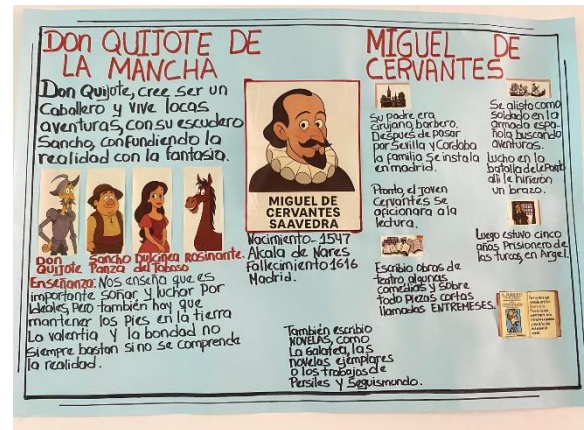 DON QUIJOTE DE
LA MANCHA
Don Quijote, cree ser un
Caballero y vive locas
aventuras, con su escudero
Sancho, confundiendo la
realidad con la fantasía.
Don
Quijote
Sancho
Panza
Dulcinea
del Toboso
Rosinante.
Enseñanza: Nos enseña que es
importante soñar y luchar por
Ideales, Pero también hay que
mantener los Pies en la tierra
La valentía y la bondad no
siempre bastan si no se comprende
la realidad.
MIGUEL DE
CERVANTES
SAAVEDRA
Nacimiento-1547
Alcala de Nares
Fallecimiento 1616
Madrid.
También escribio
NOVELAS, como
La Galatea, las
novelas ejemplares
o los trabajos de
Persiles y Seguismundo.
MIGUEL DE
CERVANTES
Su padre era
cirujano, barbero.
Después de pasar
por Sevilla y Cordoba
la familia se instala
en madrid.
Pronto, el joven
Cervantes se
aficionara a la
lectura.
Escribio obras de
teatro, algunas
comedias y sobre
todo piezas cortas
llamadas ENTREMESES.
Se alisto como
soldado en la
armada espa-
ñola buscando
aventuras.
Lucho en la
batalla de lePanto
alli le hirieron
un brazo.
Luego estuvo cinco
años Prisionero de
los turcos, en Argel.